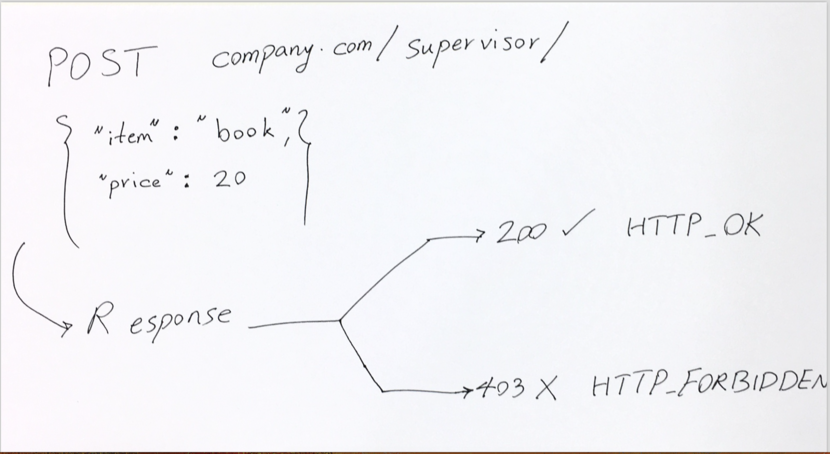 POST company.com/supervisor/
{ "item": "book", }
"price": 20
200 ✓ HTTP_OK
Response
403 X HTTP_FORBIDDEN